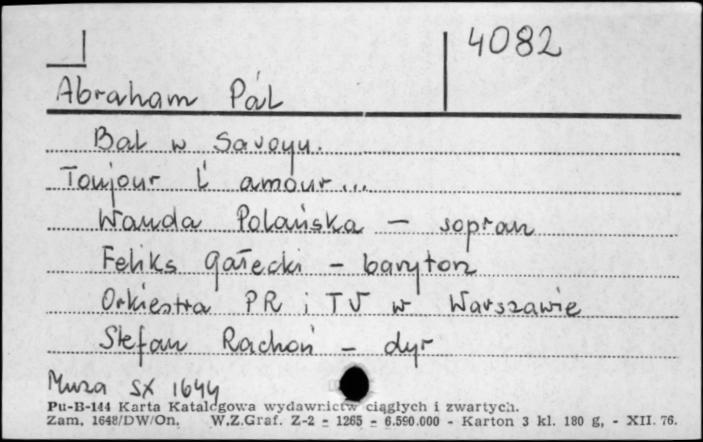 4082
Abraham Pál
Bal w Savoyu.
Toujour L' amour...
Wanda Polańska – sopran
Feliks Gałecki – baryton
Orkiestra PR i TV w Warszawie
Stefan Rachoń – dyr
Muza SX 1644
Pu-B-144 Karta Katalogowa wydawnictw ciągłych i zwartych.
Zam. 1648/DW/On. W.Z.Graf. Z-2 - 1265 - 6.590.000 - Karton 3 kl. 180 g, - XII. 76.